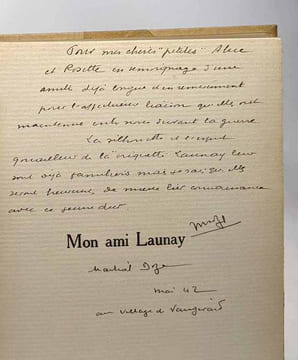 Pour mes chères "petites" Alice
et Rosette en témoignage d'une
amitié déjà longue et en remerciement
pour l'affectueuse liaison qu'elles ont
maintenue entre nous durant la guerre
La silhouette et l'esprit
gouailleur de la "criquette" Launay leur
sont déjà familiers mais je sais qu'elles
seront heureuses de mieux lier connaissance
avec ce jeune
Mon ami Launay
Martial
mai 42
au village de Vaugirard